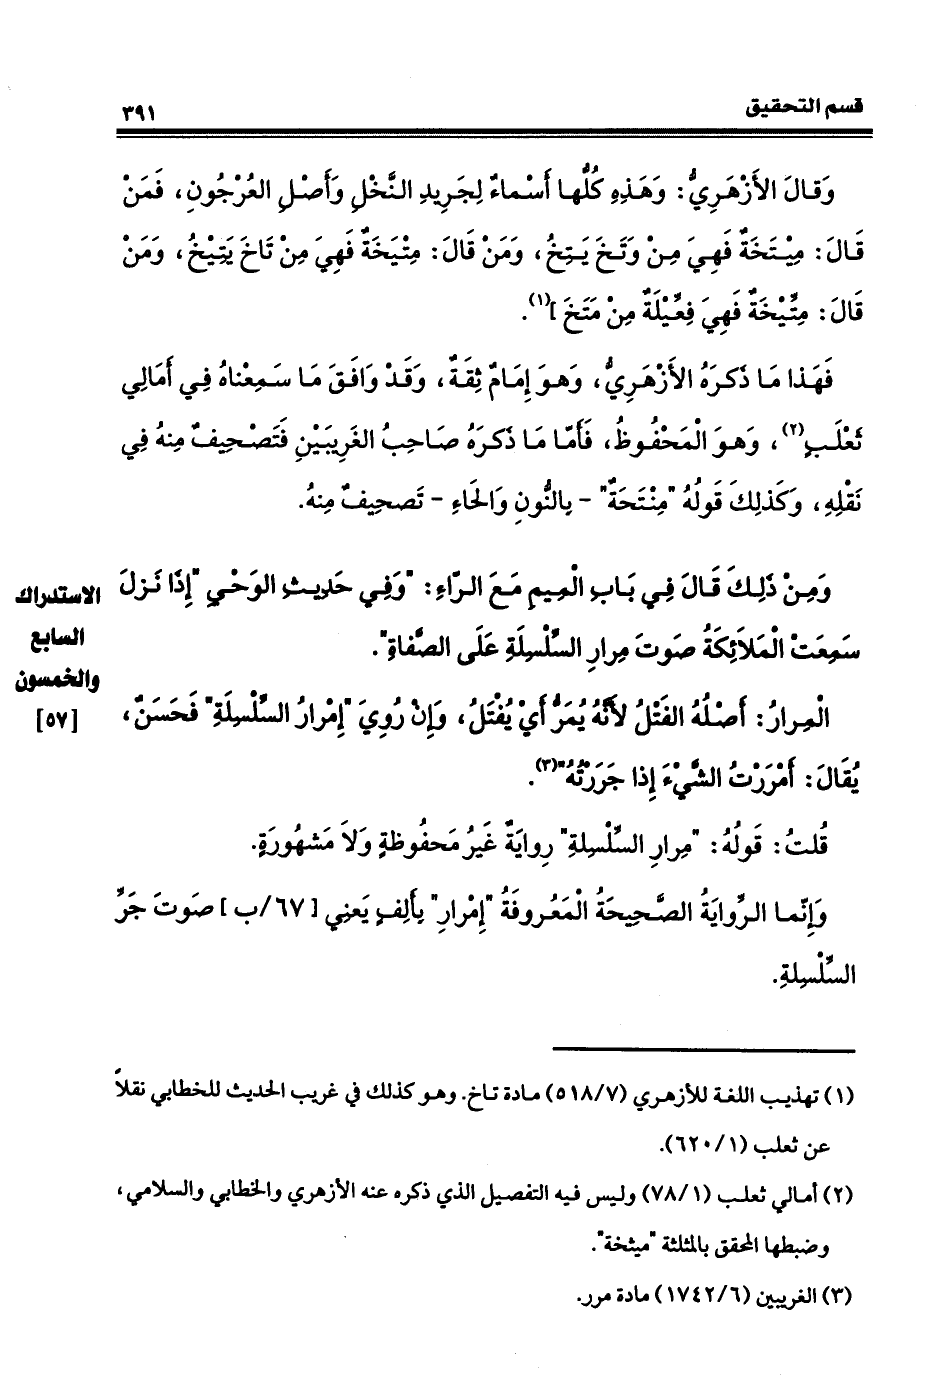 قسم التحقيق
٣٩١
وَقالَ الأَزْهَرِيُّ: وَهَذِهِ كُلُّها أَسْماءٌ لِجَرِيدِ النَّخْلِ وَأَصْلِ العُرْجُونِ، فَمَنْ
قَالَ: مِيْتَخَةٌ فَهِيَ مِنْ وَتَخَ يَتِخُ، وَمَنْ قالَ: مِتْيَخَةٌ فَهِيَ مِنْ تَاخَ يَتِيْخُ، وَمَنْ
قَالَ: مِتِّيْخَةٌ فَهِيَ فِعِّيْلَةٌ مِنْ مَتَخَ ](١).
فَهَذا مَا ذَكرَهُ الأَزْهَرِيُّ، وَهوَ إِمَامٌ ثِقَةٌ، وَقَدْ وَافَقَ مَا سَمِعْناهُ فِي أَمَالِي
ثَعْلَبٍ(٢)، وَهوَ الْمَحْفُوظُ، فَأَمّا مَا ذَكرَهُ صَاحِبُ الغَرِيبَيْنِ فَتَصْحِيفٌ مِنهُ فِي
نَقْلِهِ، وَكَذلِكَ قَولُهُ "مِنْتَحَةٌ" - بِالنُّونِ وَالحَاءِ - تَصحِيفٌ مِنهُ.
وَمِنْ ذَلِكَ قَالَ فِي بَابِ الْمِيمِ مَعَ الرَّاءِ: "وَفِي حَدِيثِ الوَحْيِ "إِذَا نَزلَ
سَمِعَتْ الْمَلاَئِكَةُ صَوتَ مِرارِ السِّلْسِلَةِ عَلَى الصَّفاةِ".
الْمِرارُ: أَصْلُهُ الفَتْلُ لأَنَّهُ يُمَرُّ أَيْ يُفْتَلُ، وَإِنْ رُوِيَ "إِمْرارُ السِّلْسِلَةِ" فَحَسَنٌ،
يُقَالَ: أَمْرَرْتُ الشَّيْءَ إِذا جَرَرْتُهُ"(٣).
قُلتُ: قَولُهُ: "مِرارِ السِّلْسِلةِ" رِوايَةٌ غَيرُ مَحفُوظةٍ وَلاَ مَشهُورَةٍ.
وَإِنّما الرِّوايَةُ الصَّحِيحَةُ الْمَعْروفَةُ "إِمْرار" بِأَلِفٍ يَعنِي [ ٦٧/ب ] صَوتَ جَرِّ
السِّلْسِلةِ.
الاستدراك
السابع
والخمسون
[٥٧]
(١) تهذيب اللغة للأزهري (٥١٨/٧) مادة تاخ. وهو كذلك في غريب الحديث للخطابي نقلاً
عن ثعلب (٦٢٠/١).
(٢) أمالي ثعلب (٧٨/١) وليس فيه التفصيل الذي ذكره عنه الأزهري والخطابي والسلامي،
وضبطها المحقق بالمثلثة "ميثخة".
(٣) الغريبين (١٧٤٢/٦) مادة مرر.